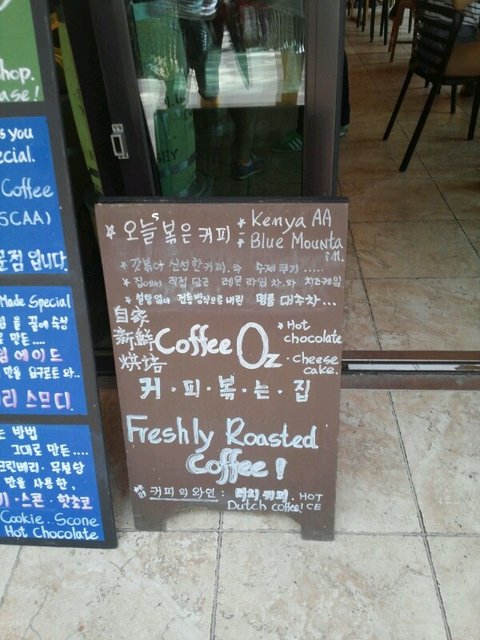 hop.
ase!
s you
ecial.
Coffee
SCAA)
문점 입니다.
Made Special
을 꿀에 숙성
만든....
에이드
만을 요구르트 와..
리 스무디.
는 방법
그대로 만든....
크린베리·무설탕
만을 사용한,
기·스콘·핫초코
Cookie. Scone
Hot Chocolate
* 오늘 볶은 커피 * Kenya AA
* Blue Mounta
in.
* 갓볶아 신선한 커피 와 수제 쿠키 .....
* 집에서 직접 담근 레몬 라임 차 와 치즈케익
* 전통방식으로 내린 명품 대추차...
自家
新鮮
烘焙
Coffee Oz
* Hot
chocolate
· cheese
cake.
커·피·볶·는·집
Freshly Roasted
Coffee!
커피 의 와인 : 더치 커피. HOT
Dutch coffee ICE